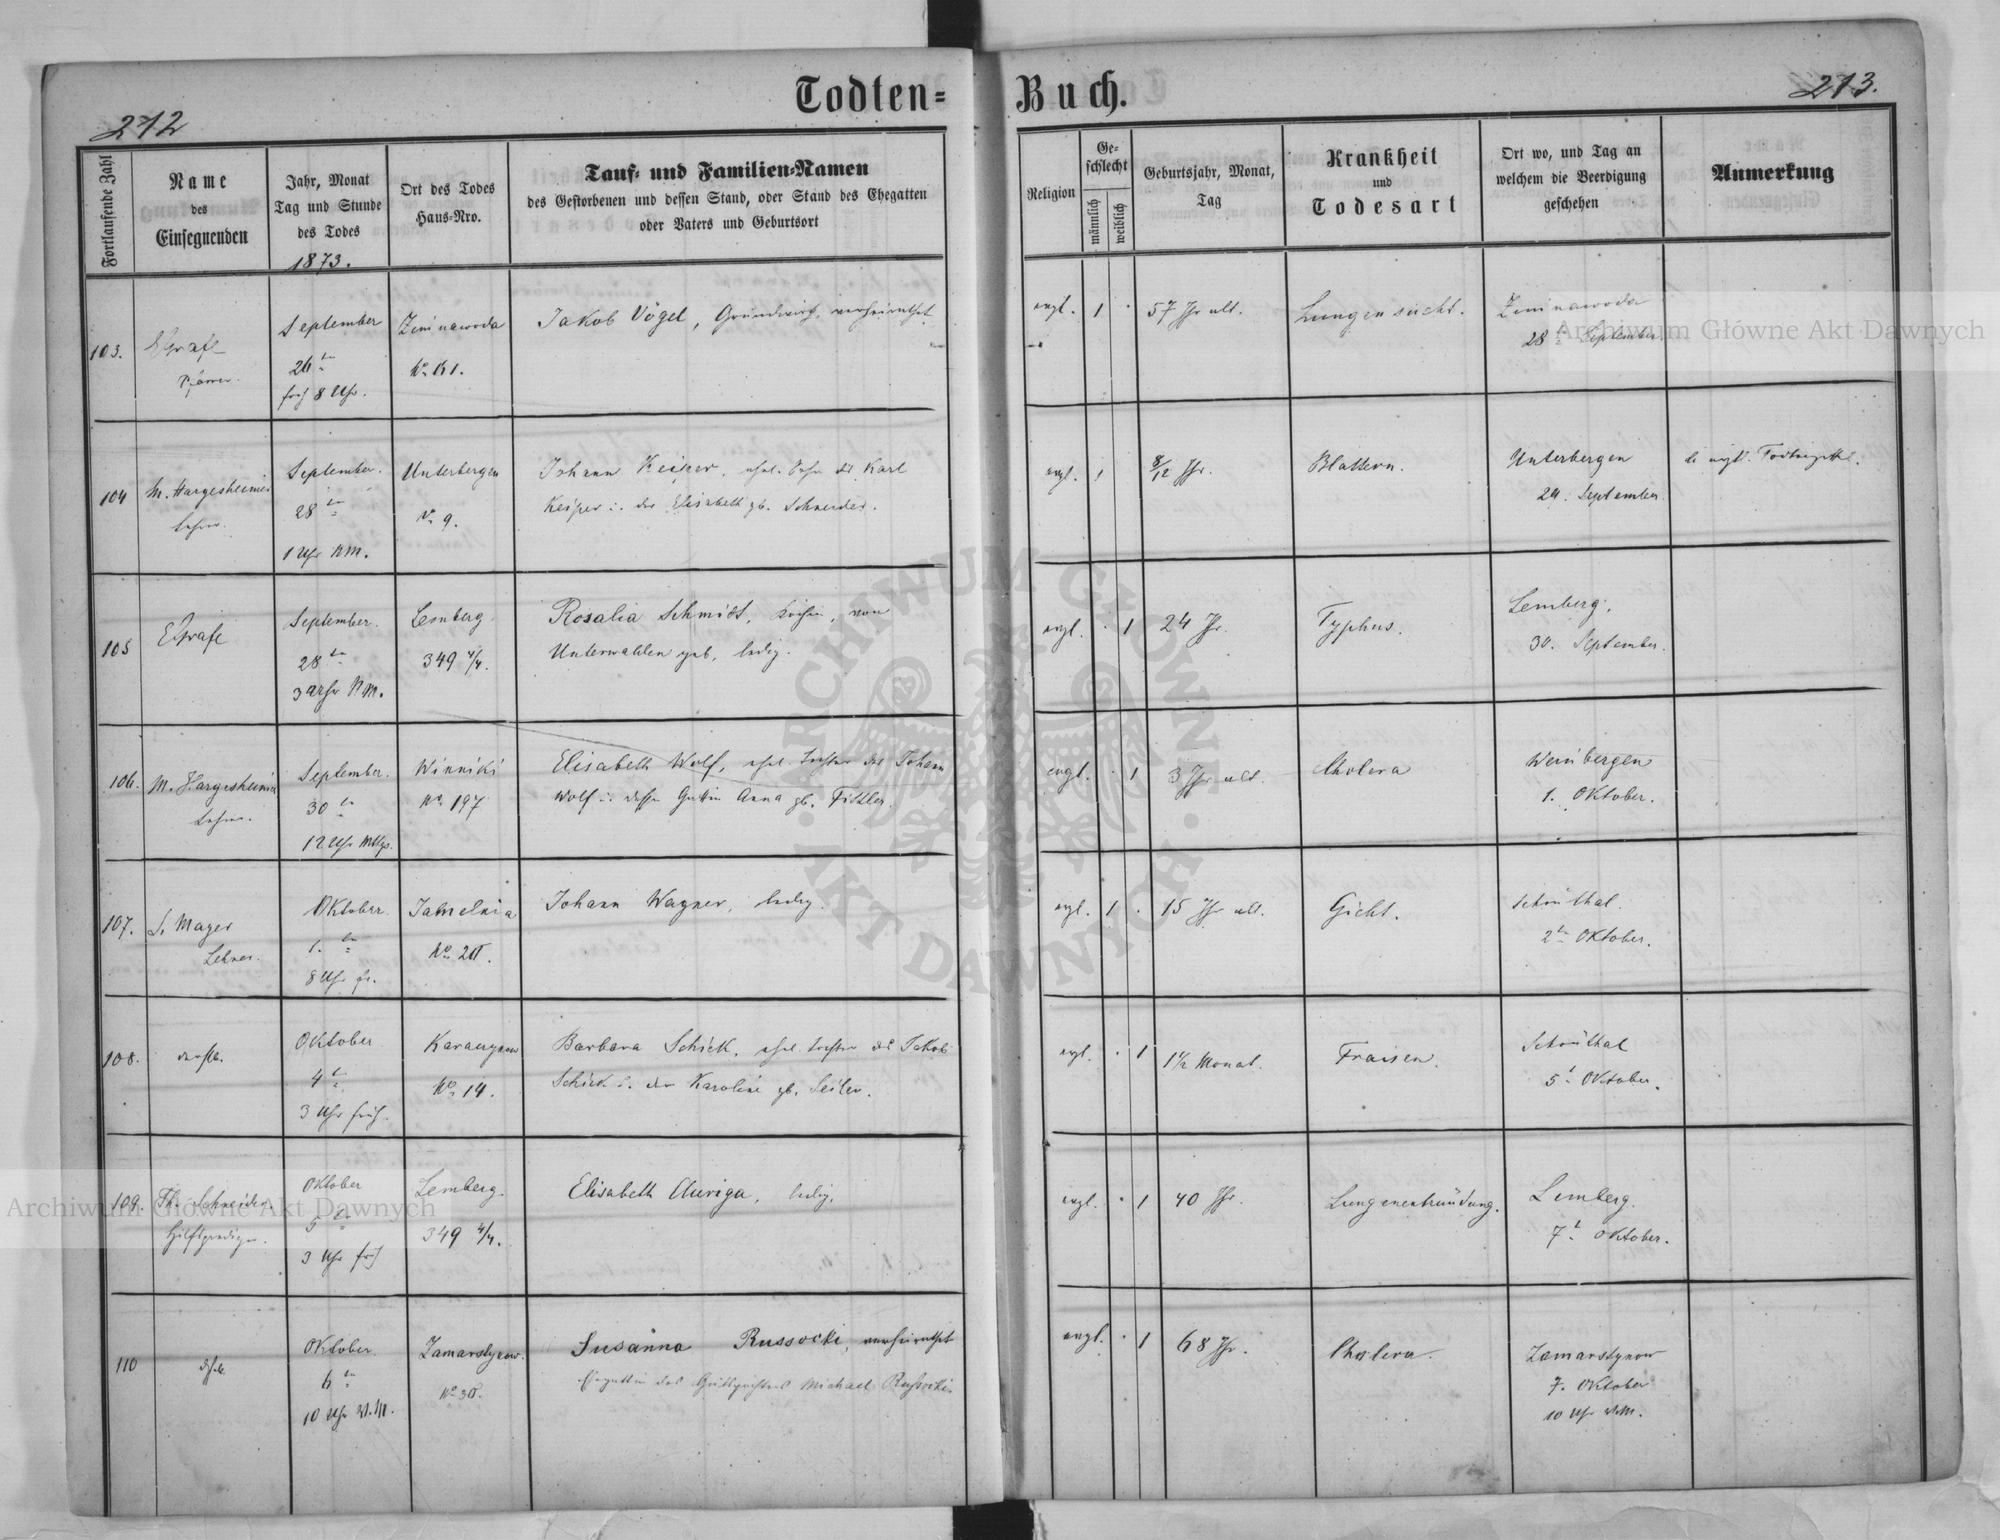 Todten=
Buch.
272
273.
Fortlaufende Zahl
Name
des
Einsegnenden
Jahr, Monat
Tag und Stunde
des Todes
1873.
Ort des Todes
Haus-Nro.
Tauf- und Familien-Namen
des Gestorbenen und dessen Stand, oder Stand des Ehegatten
oder Vaters und Geburtsort
Religion
Ge-
schlecht
männlich
weiblich
Geburtsjahr, Monat,
Tag
Krankheit
und
Todesart
Ort wo, und Tag an
welchem die Beerdigung
geschehen
Anmerkung
103.
EGrafe
Pfarrer.
September
26ten
früh 8 Uhr.
Zimnawoda
No 61.
Jakob Vögel, Grundwirth, verheirathet
evgl.
1
57 Jhr alt.
Lungensucht.
Zimnawoda
28ten September
104
M. Hargesheimer
Lehrer.
September.
28ten
1 Uhr NM.
Unterbergen
No 9.
Johann Keiper, ehel. Sohn des Karl
Keiper u. der Elisabeth gb. Schneider.
evgl.
1
8/12 Jhr.
Blattern.
Unterbergen
29. September
105
EGrafe
September.
28ten
3 Uhr NM.
Lemberg
349 4/4.
Rosalia Schmidt, Köchin, von
Unterwalden geb, ledig.
evgl.
1
24 Jhr.
Typhus.
Lemberg.
30. September.
106.
M. Hargesheimer
Lehrer.
September.
30ten
12 Uhr Mttgs.
Winniki
No 197
Elisabeth Wolf, ehel. Tochter des Johann
Wolf u. dessen Gattin Anna gb. Fittler.
evgl.
1
3 Jhr alt.
Cholera
Weinbergen
1. Oktober.
107.
J. Mayer
Lehrer.
Oktober.
1. ten
8 Uhr fr.
Jamelnia
No 20.
Johann Wagner, ledig.
evgl.
1
15 Jhr alt.
Gicht.
Schönthal.
2ten Oktober.
108.
derselbe.
Oktober
4ten
3 Uhr früh.
No 14.
Barbara Schick, ehel. Tochter des Jakob
Schick u. der Karoline gb. Seiler.
evgl.
1
1 1/2 Monat.
Fraisen.
Schönthal
5t Oktober.
109.
Th. Schneider
Hilfsprediger.
Oktober
5ten
3 Uhr früh
Lemberg.
349 4/4.
Elisabeth Auriga, ledig.
evgl.
1
40 Jhr.
Lungenentzündung.
Lemberg.
7t Oktober.
110
dslb
Oktober.
6ten
10 Uhr V.M.
Zamarstynow.
No 30.
Susanna Russocki, verheirathet
Ehegattin des Michael Russocki.
evgl.
1
68 Jhr.
Cholera.
Zamarstynow
7. Oktober
10 Uhr
Archiwum Główne Akt Dawnych
Archiwum Główne Akt Dawnych
ARCHIWUM GŁÓWNE
AKT DAWNYCH